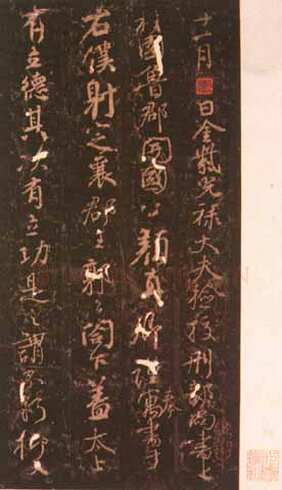 十一月日金紫光禄大夫檢校刑部尚書上
柱國魯郡開國公顔真卿謹奉寓書于
右僕射定襄郡王郭公閤下蓋太上
有立德其次有立功是之謂不朽抑又